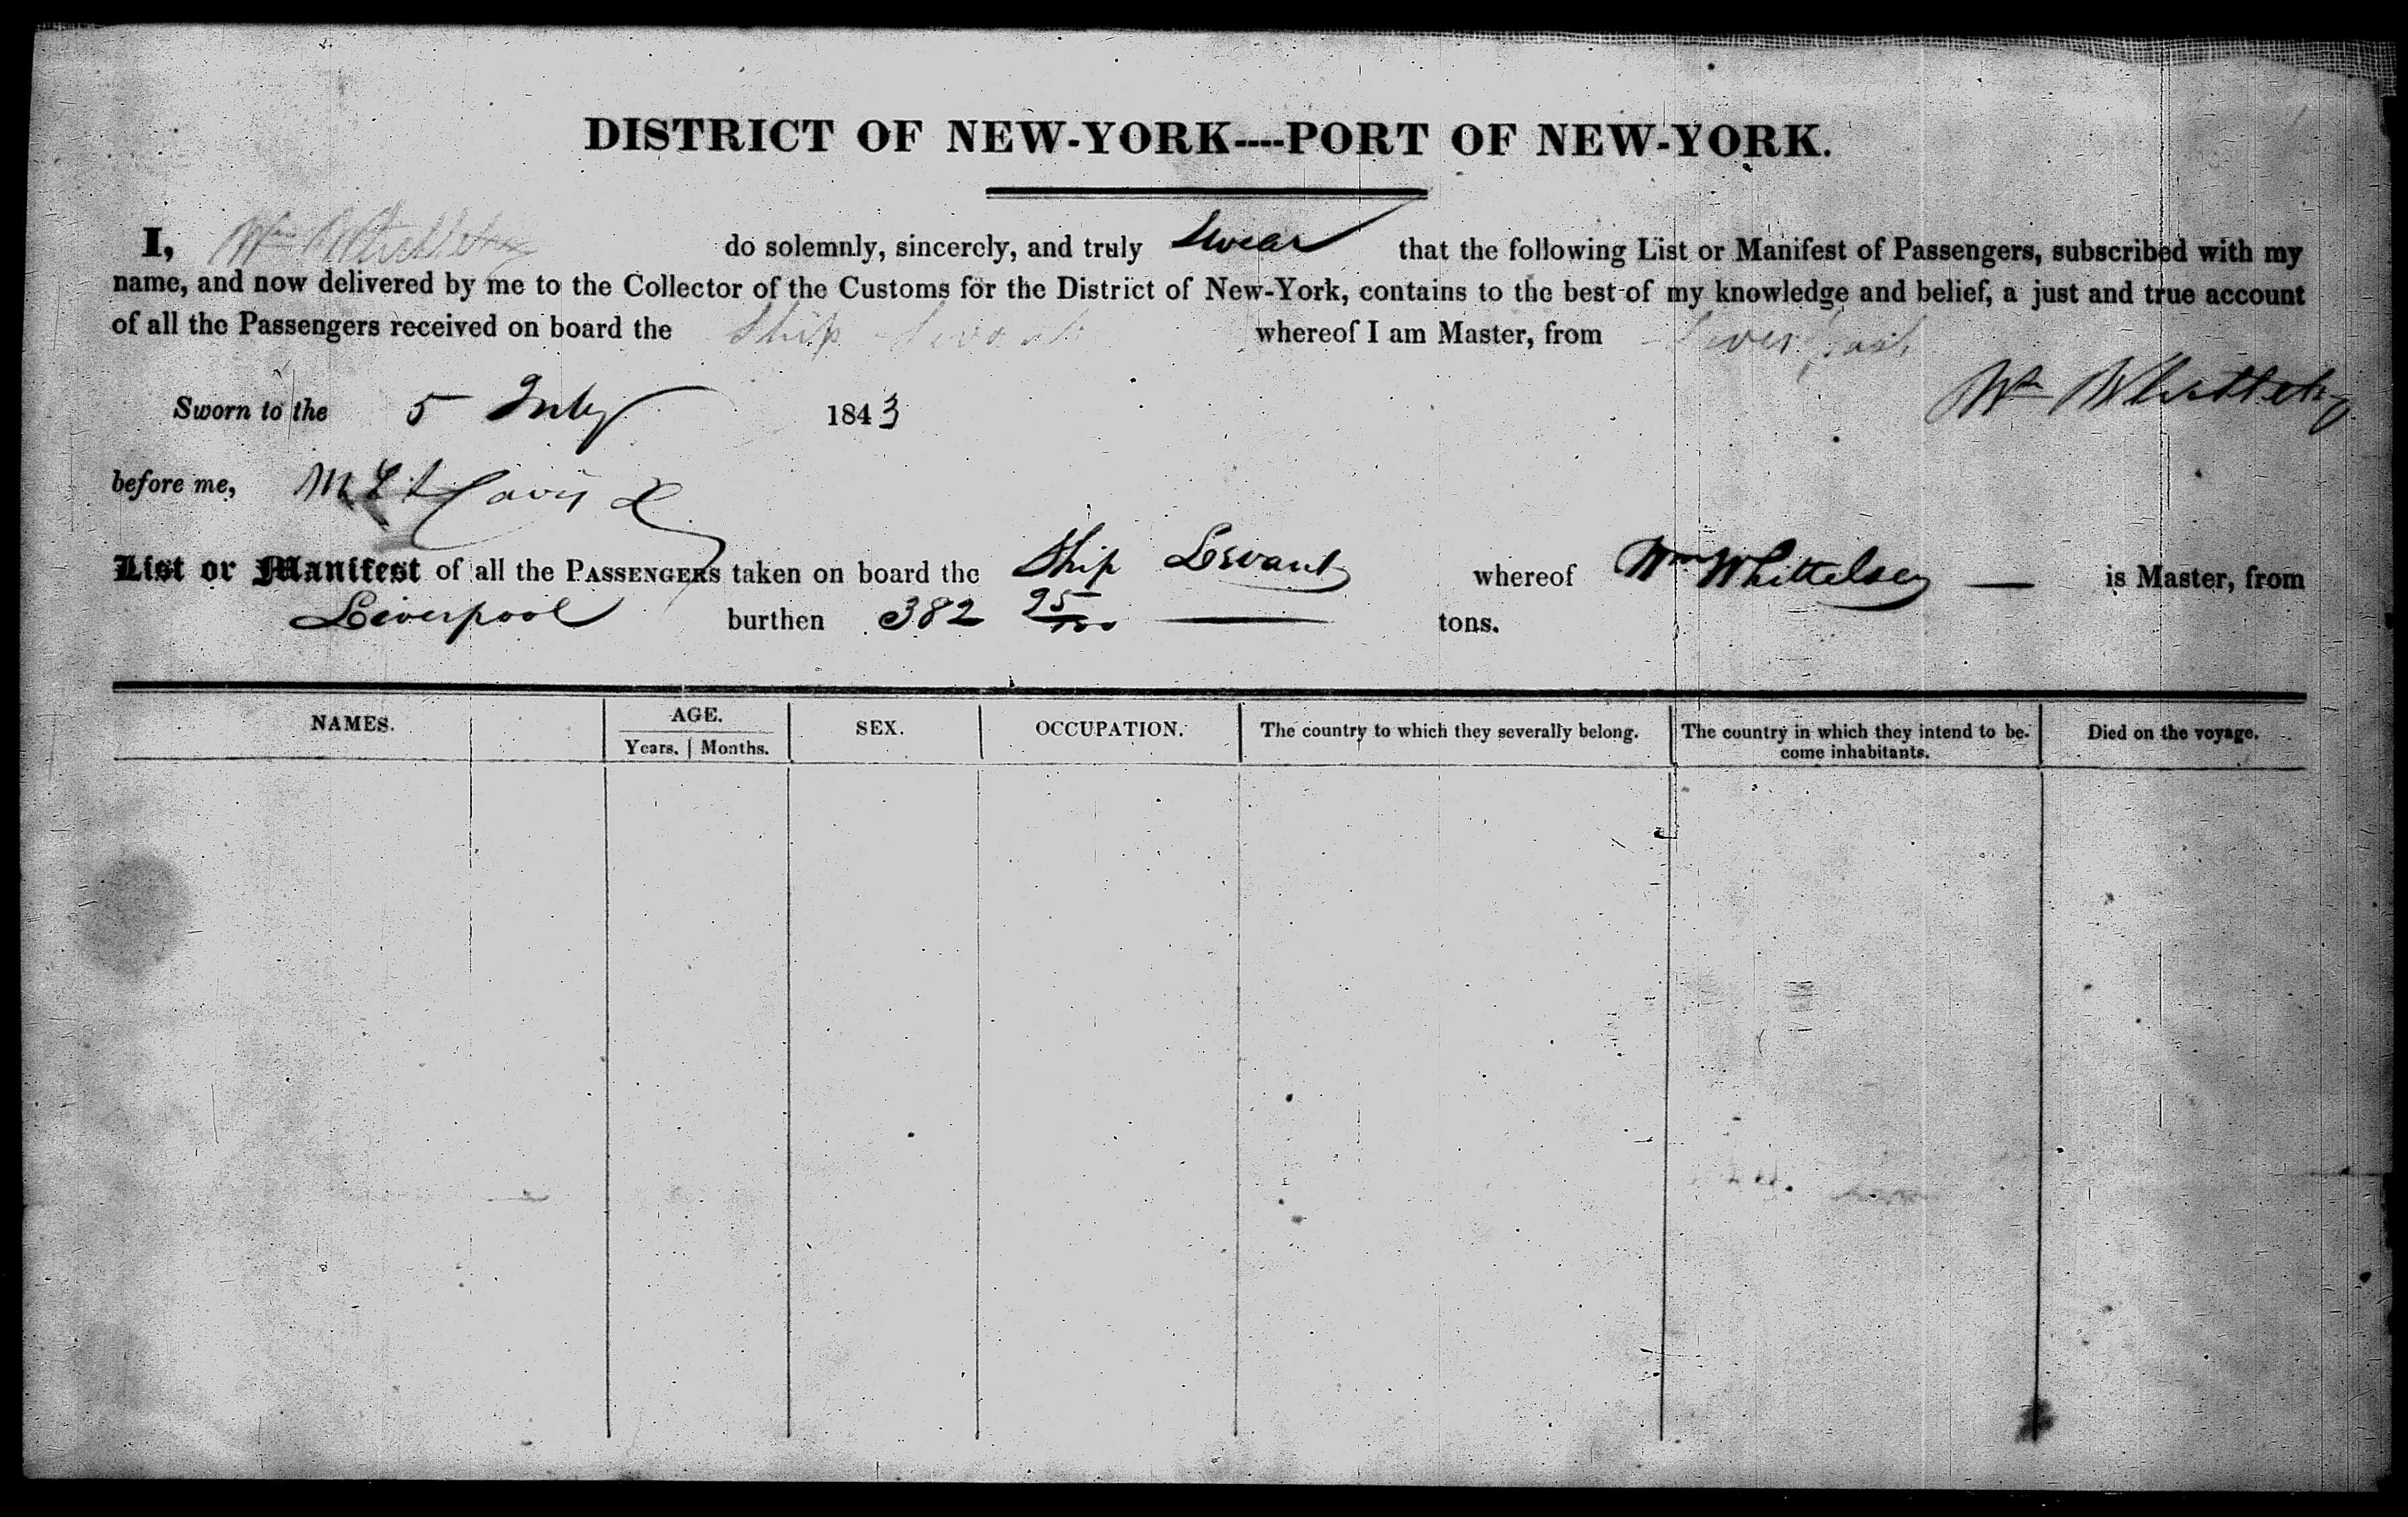 DISTRICT OF NEW-YORK----PORT OF NEW-YORK.
I, Wm Whittelsey do solemnly, sincerely, and truly Swear that the following List or Manifest of Passengers, subscribed with my
name, and now delivered by me to the Collector of the Customs for the District of New-York, contains to the best of my knowledge and belief, a just and true account
of all the Passengers received on board the Ship Levant whereof I am Master, from Liverpool
Wm Whittelsey
Sworn to the 5 July 1843
before me,
List or Manifest of all the PASSENGERS taken on board the Ship Levant whereof Wm Whittelsey — is Master, from
Liverpool burthen 382 25/100 — tons.
NAMES. AGE. SEX. OCCUPATION. The country to which they severally belong. The country in which they intend to be- Died on the voyage.
Years. Months. come inhabitants.